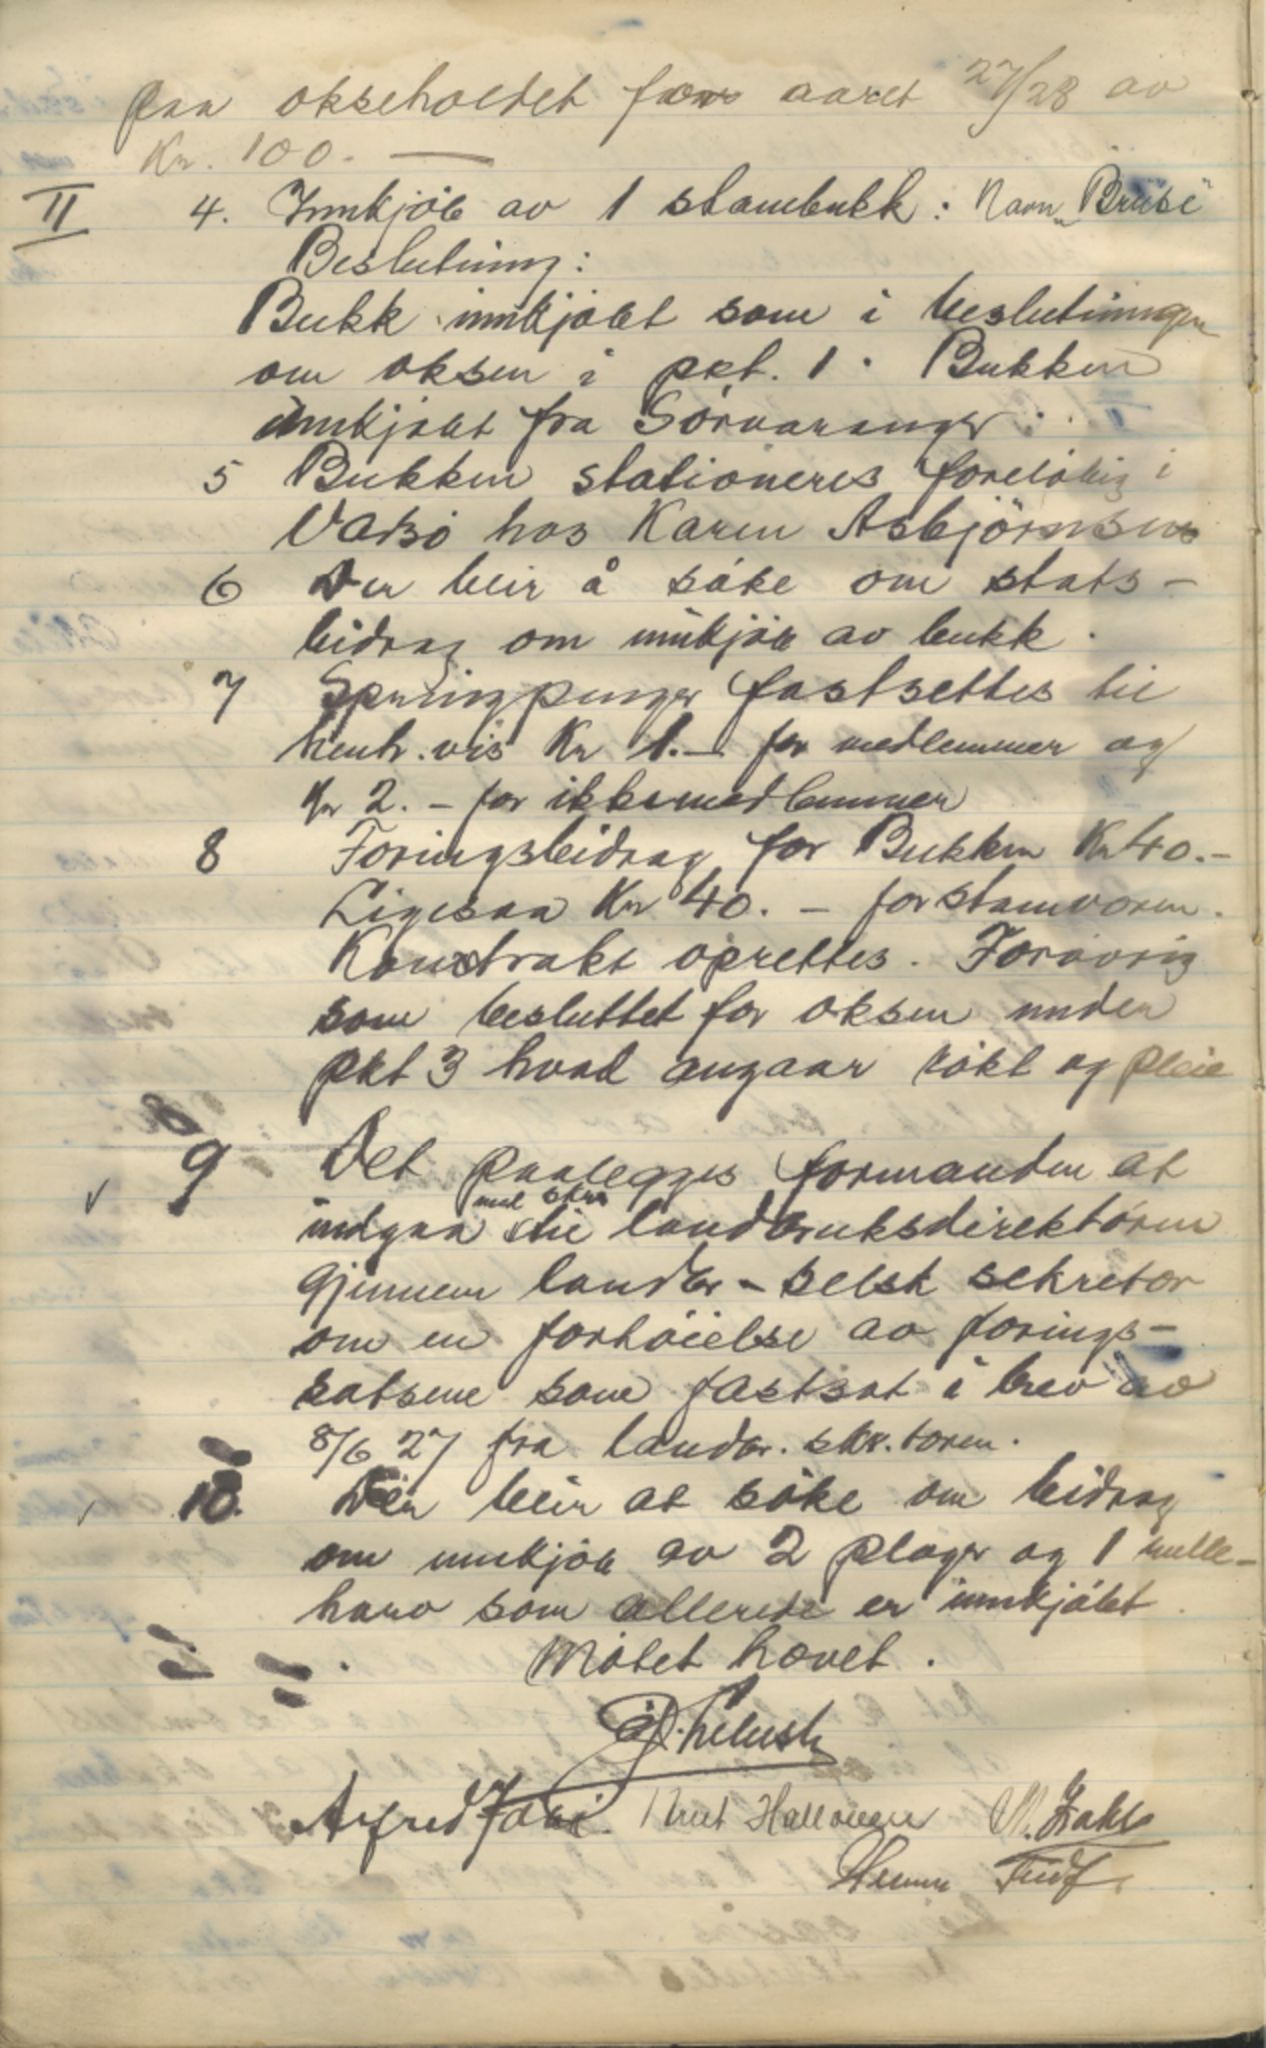 paa okseholdet for aaret 27/28 av
Kr. 100.—
II 4. Innkjøb av 1 stambukk: Navn „Bruse"
Beslutning:
Bukk innkjøbt som i beslutningen
om oksen i pkt. 1. Bukken
innkjøbt fra Sørvaranger.
5 Bukken stationeres foreløbig i
Vadsø hos Karen Asbjörnsen
6 Der blir å søke om stats-
bidrag om innkjøb av bukk.
7 Springpenger fastsettes til
henh.vis Kr 1.- for medlemmer og
Kr 2.- for ikkemedlemmer
8 Foringsbidrag for Bukken Kr 40.-
Ligesaa Kr 40.- for stamværen.
Konstrakt oprettes. Forøvrig
som besluttet for oksen under
pkt 3 hvad angaar røkt og pleie
✓ 9 Det paalegges formanden at
indgaa med skr. til landbruksdirektøren
gjennem landbr-selsk sekretær
om en forhøielse av forings-
satsene som fastsat i brev av
8/6 27 fra landbr. skr.toren.
✓ 10. Der blir at søke om bidrag
om innkjøb av 2 ploger og 1 rulle-
harv som allerede er innkjøbt.
Møtet hævet.
Alfred Knut M.